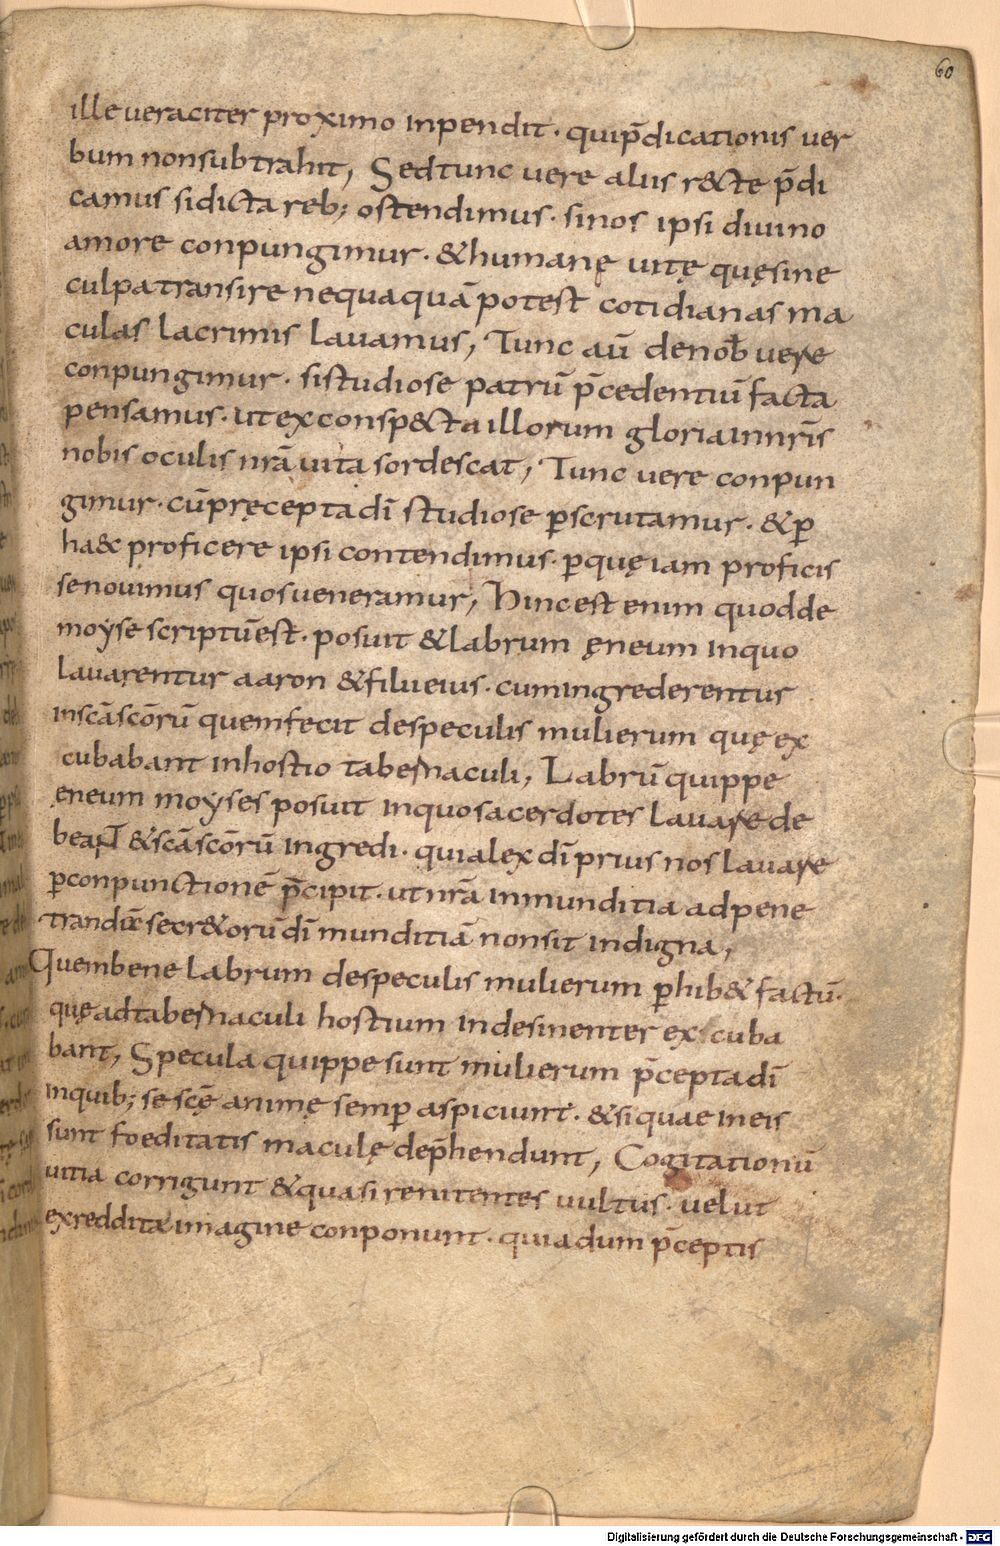 60
ille veraciter proximo inpendit · qui p̄dicationis ver
bum non subtrahit, Sed tunc vere aliis r&cte p̄di
camus si dicta reb; ostendimus · si nos ipsi divino
amore conpungimur · & humanę vitę quę sine
culpa transire nequaquā potest cotidianas ma
culas lacrimis lavamus, Tunc aū de nob̄ vere
conpungimur · si studiose patrū p̄cedentiū facta
pensamus · ut ex consp&cta illorum gloria in nr̄is
nobis oculis nr̄a vita sordescat, Tunc vere conpun
gimur · cū pręcepta dī studiose p̱scrutamur · & p̱
haec proficere ipsi contendimus · p̱ quę iam proficis
se novimus quos veneramur, Hinc est enim quod de
moẏse scriptū est · posuit & labrum ęneum in quo
lavarentur aaron & filii eius · cum ingrederentur
in sc̄a sc̄orū quem fecit de speculis mulierum quę ex
cubabant in hostio tabernaculi, Labrū quippe
eneum moẏses posuit in quo sacerdotes lavare de
beaNT & sc̄a sc̄orū ingredi · quia lex dī prius nos lavare
p̱ conpunctionē p̄cipit · ut nr̄a inmunditia ad pene
trandā secr&orū dī munditiā non sit indigna,
Quem bene labrum de speculis mulierum p̱hib& factū ·
quę ad tabernaculi hostium indesinenter excuba
bant, Specula quippe sunt mulierum p̄cepta dī
in quib; se sc̄ę animę semp̱ aspiciunt · & si quae in eis
sunt foeditatis maculę dep̄hendunt, Cogitationū
vitia corrigunt & quasi renitentes vultus · velut
ex reddita imagine conponunt · quia dum p̄ceptis
Digitalisierung gefördert durch die Deutsche Forschungsgemeinschaft - DFG